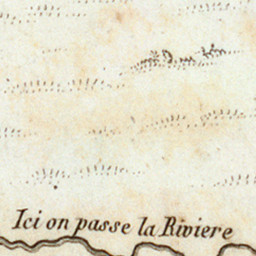 Ici on passe la Riviere